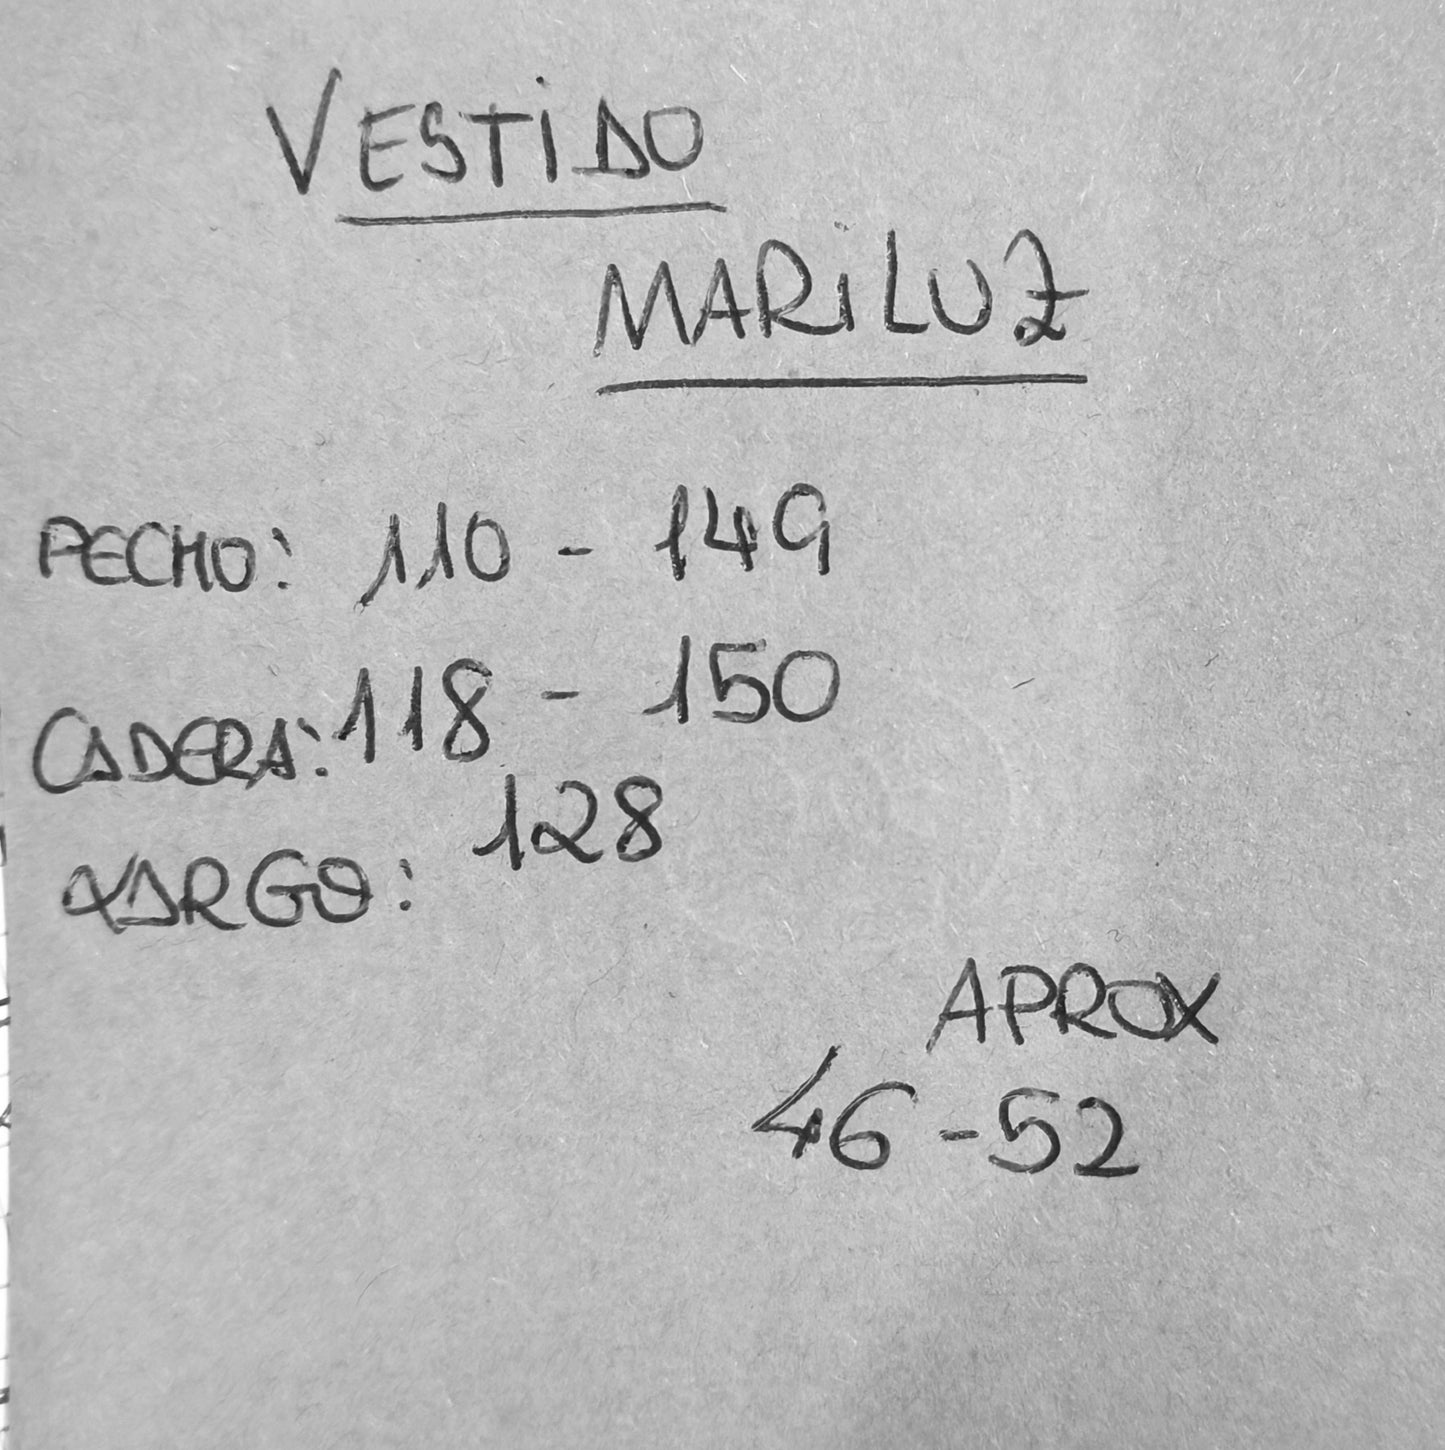 VESTiDO
MARiLUZ
PECHO: 110 - 149
CADERA: 118 - 150
LARGO: 128
APROX
46 - 52